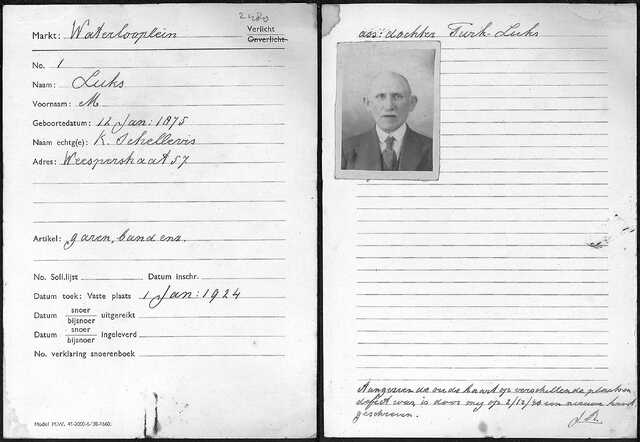 2480
Markt: Waterlooplein
Verlicht
Onverlicht
No. 1
Naam: Luks
Voornaam: M
Geboortedatum: 12 Jan: 1875
Naam echtg(e): K. Schellevis
Adres: Weesperstraat 57
Artikel: garen, band enz.
No. Soll.lijst Datum inschr.
Datum toek: Vaste plaats 1 Jan: 1924
Datum snoer bijsnoer uitgereikt
Datum snoer bijsnoer ingeleverd
No. verklaring snoerenboek
Model M.W. 41-2000-6/38-1660.
ass: dochter Turk-Luks
Aangezien de oude kaart op verschillende plaatsen
defect was, is door mij op 2/12/40 een nieuwe kaart
geschreven.